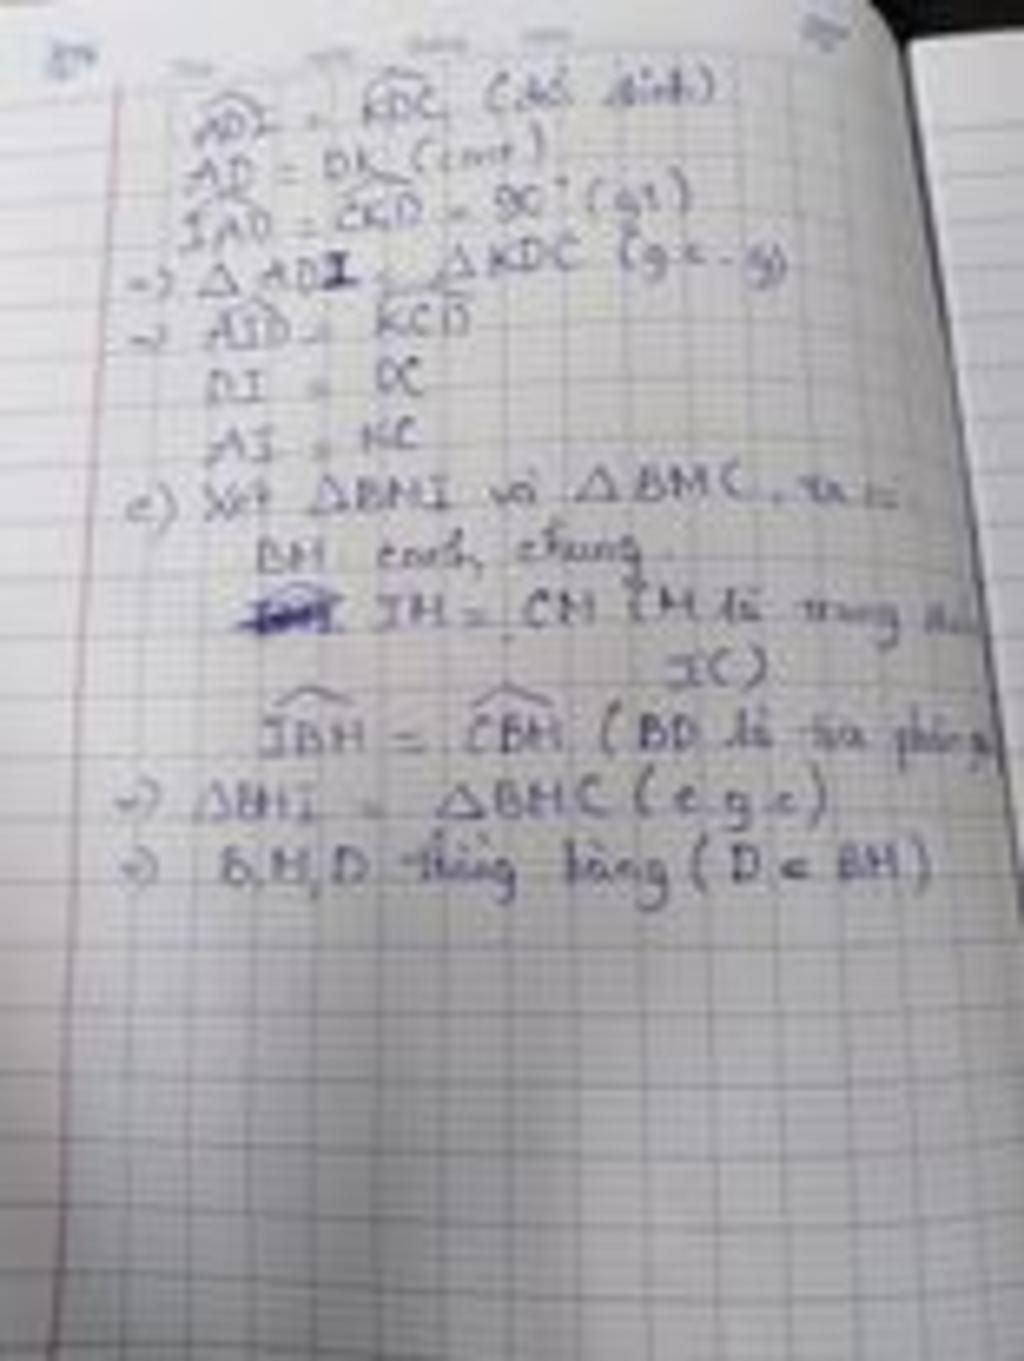 ADI = KDC (đối đỉnh)
AD = DK (cmt)
IAD = CKD = 90° (gt)
=> △ADI = △KDC (g-c-g)
=> AID = KCD
DI = DC
AI = KC
c) Xét △BMI và △BMC, ta có
BM cạnh chung
IM = CM (M là trung điểm
IC)
IBM = CBM (BD là tia phân
=> △BMI = △BMC (c.g.c)
=> B, M, D thẳng hàng (D ∈ BM)